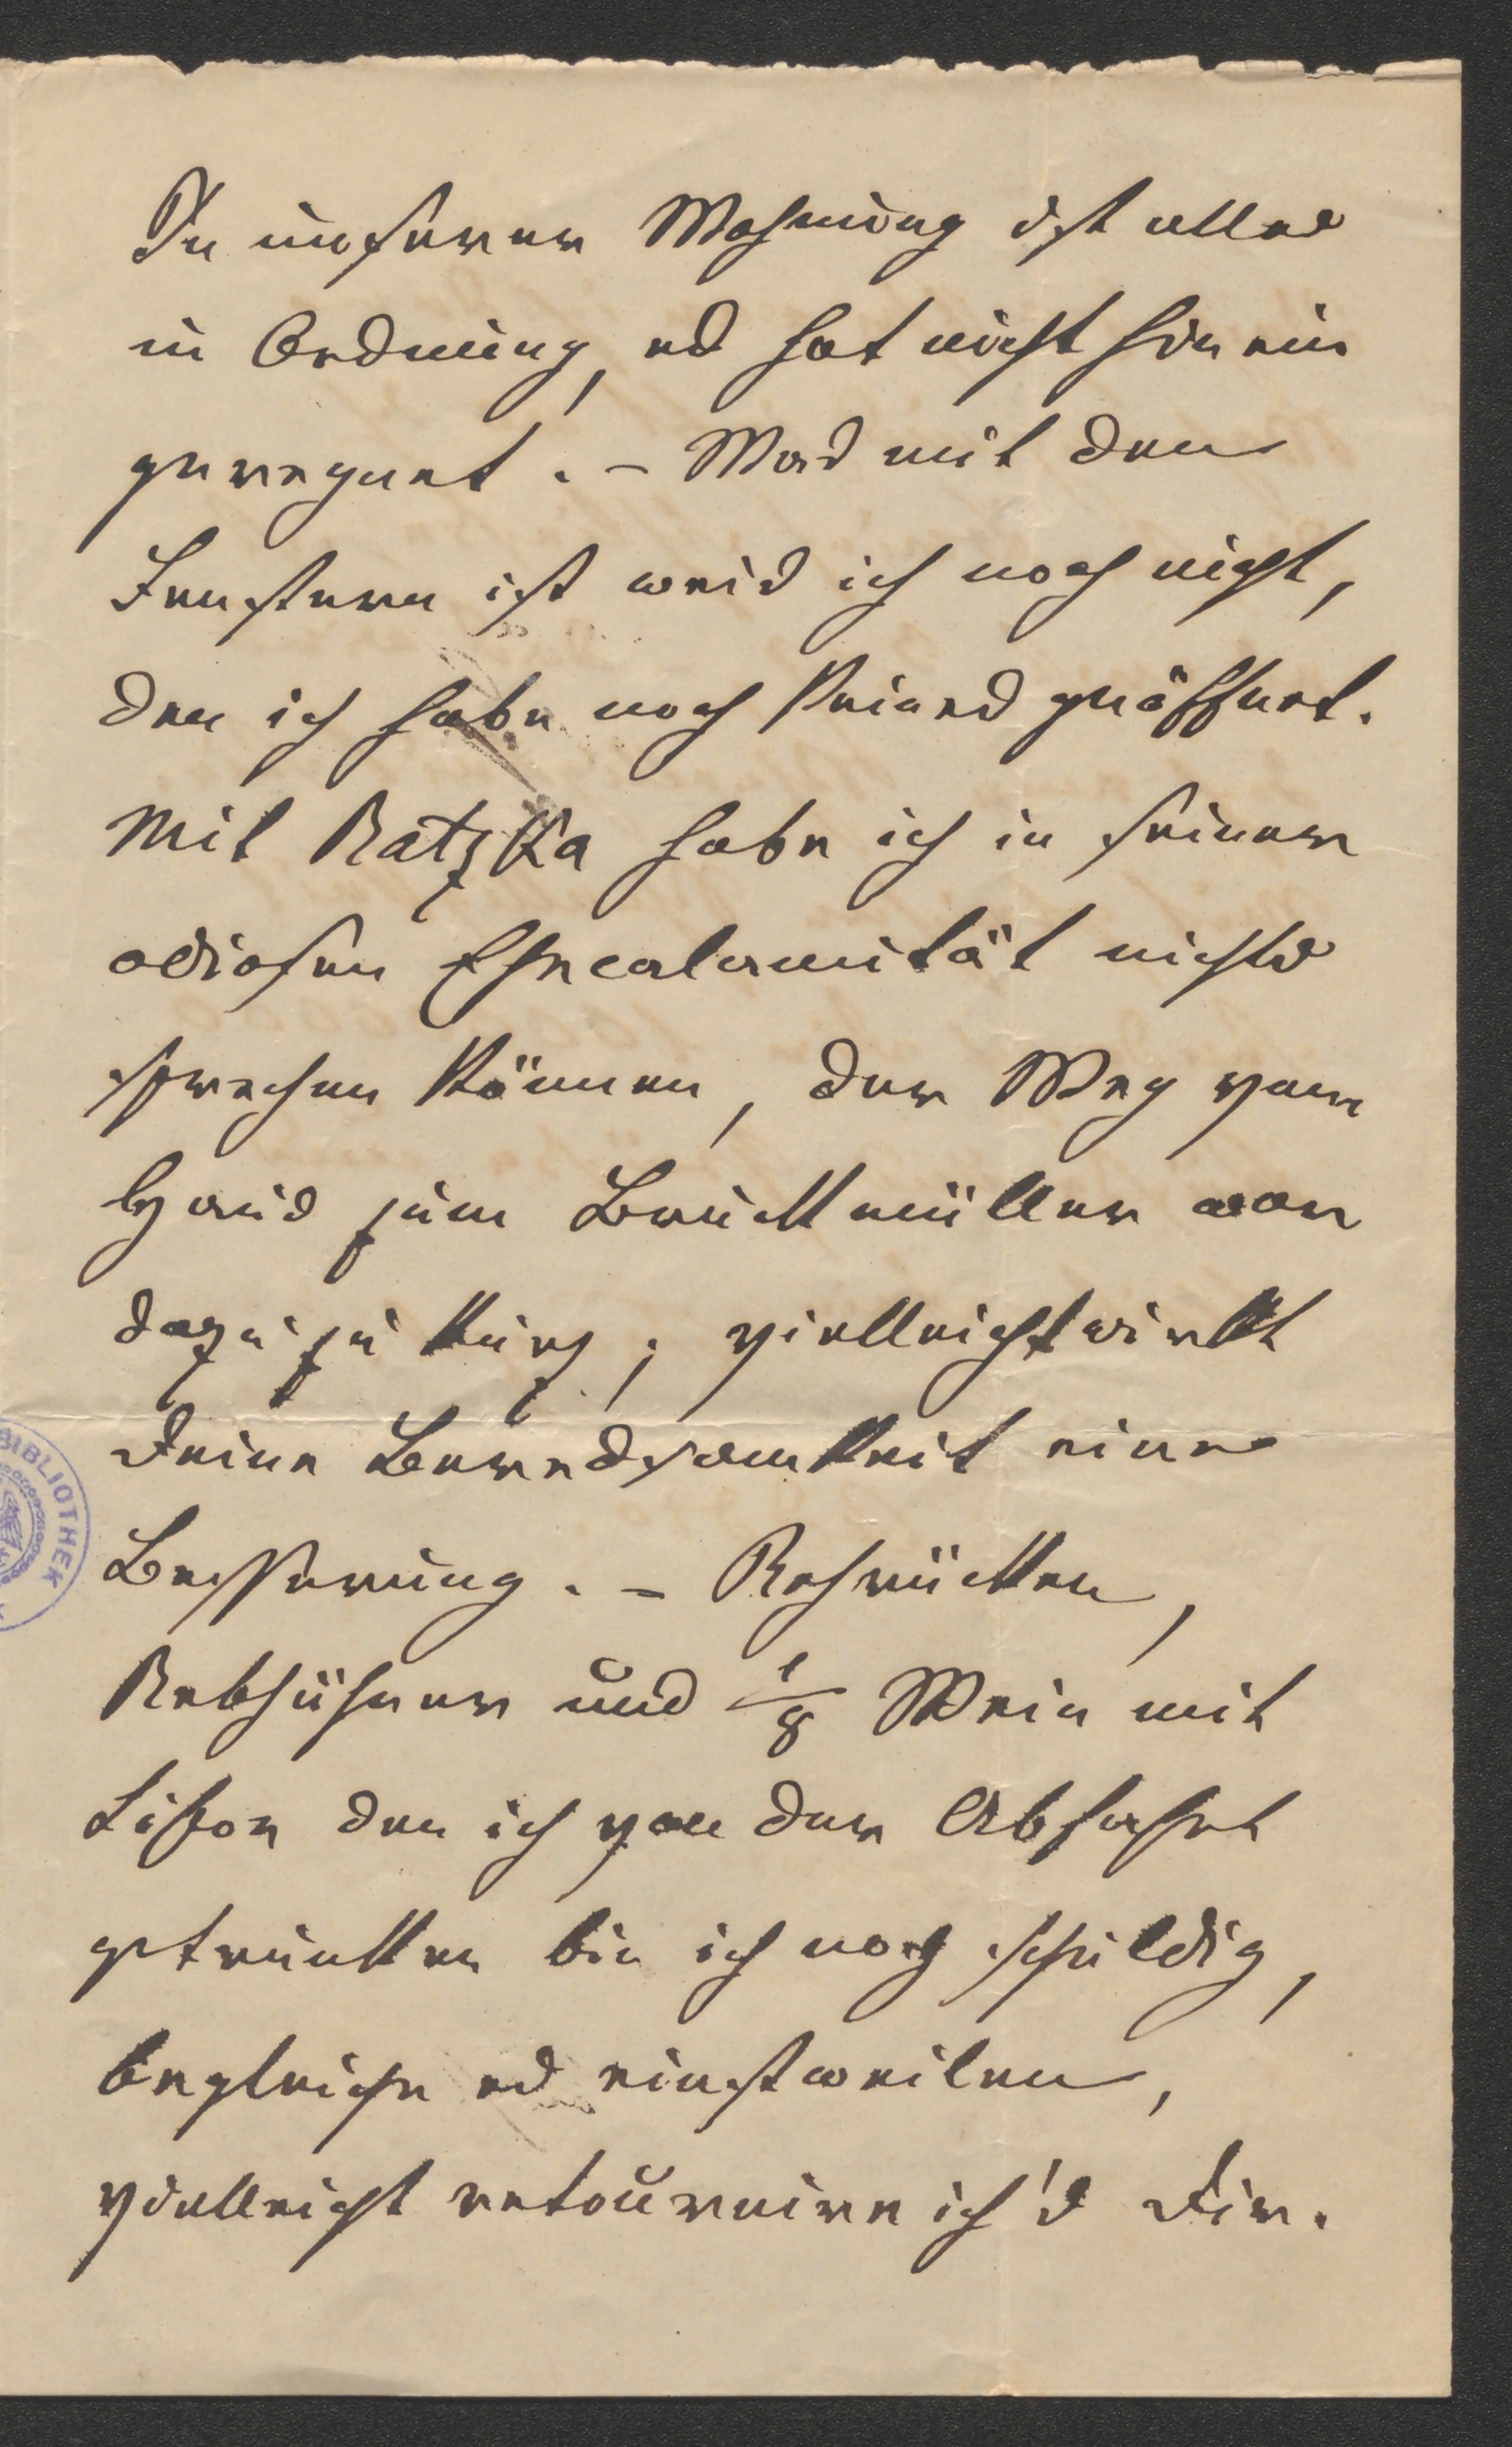 In unserer Wohnung ist alles
in Ordnung, es hat nicht hinein
geregnet. – Was mit den
Fenstern ist weis ich noch nicht,
den ich habe noch Keines geöffnet.
Mit Ratzka habe ich in seiner
odiosen Ehecalamität nichts
sprechen können, der Weg vom
Haus zum Bruckmüller war
dazu zu kurz; vielleicht wirkt
Deine Beredsamkeit eine
Besserung. – Rehrücken,
Rebhühner und 1/8 Wein mit
Sifon den ich von der Abfahrt
getrunken bin ich noch schuldig,
begleiche es einstweilen,
vielleicht retournire ich's Dir.
BIBLIOTHEK